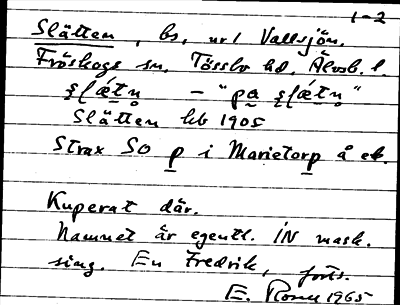 1-2
Slätten, bs, vid Vallsjön.
Fröskogs sn. Tössbo hd, Älvsb. l.
slǽtn̥ – "pa slǽtn̥"
Slätten kb 1905
Strax SO p i Marietorp å ek.
Kuperat där.
Namnet är egentl. IN mask.
sing. En Fredrik, forts.
E. 1965